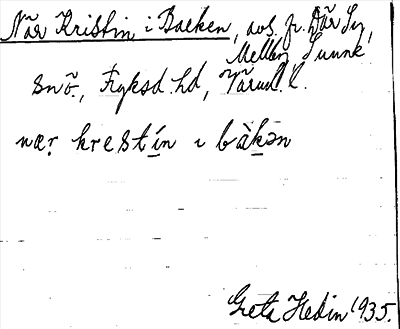 När Kristin i Backen, avs. fr. där Sy,
Mellan Sunne
snö, Fryksd. hd, Värml. l.
næṛ krestín ı bàkən
Greta Hedin 1935.